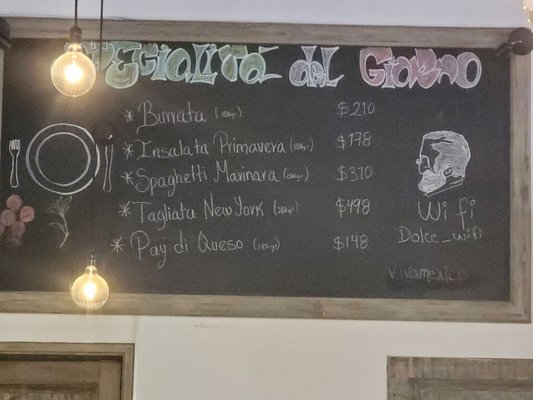 Specialità del Giorno
* Burrata (180gr) $210
* Insalata Primavera (180gr) $178
* Spaghetti Marinara (200gr) $310
* Tagliata New York $498
* Pay di Queso (180gr) $148
Wi fi
Dolce_wifi
Vivamexico